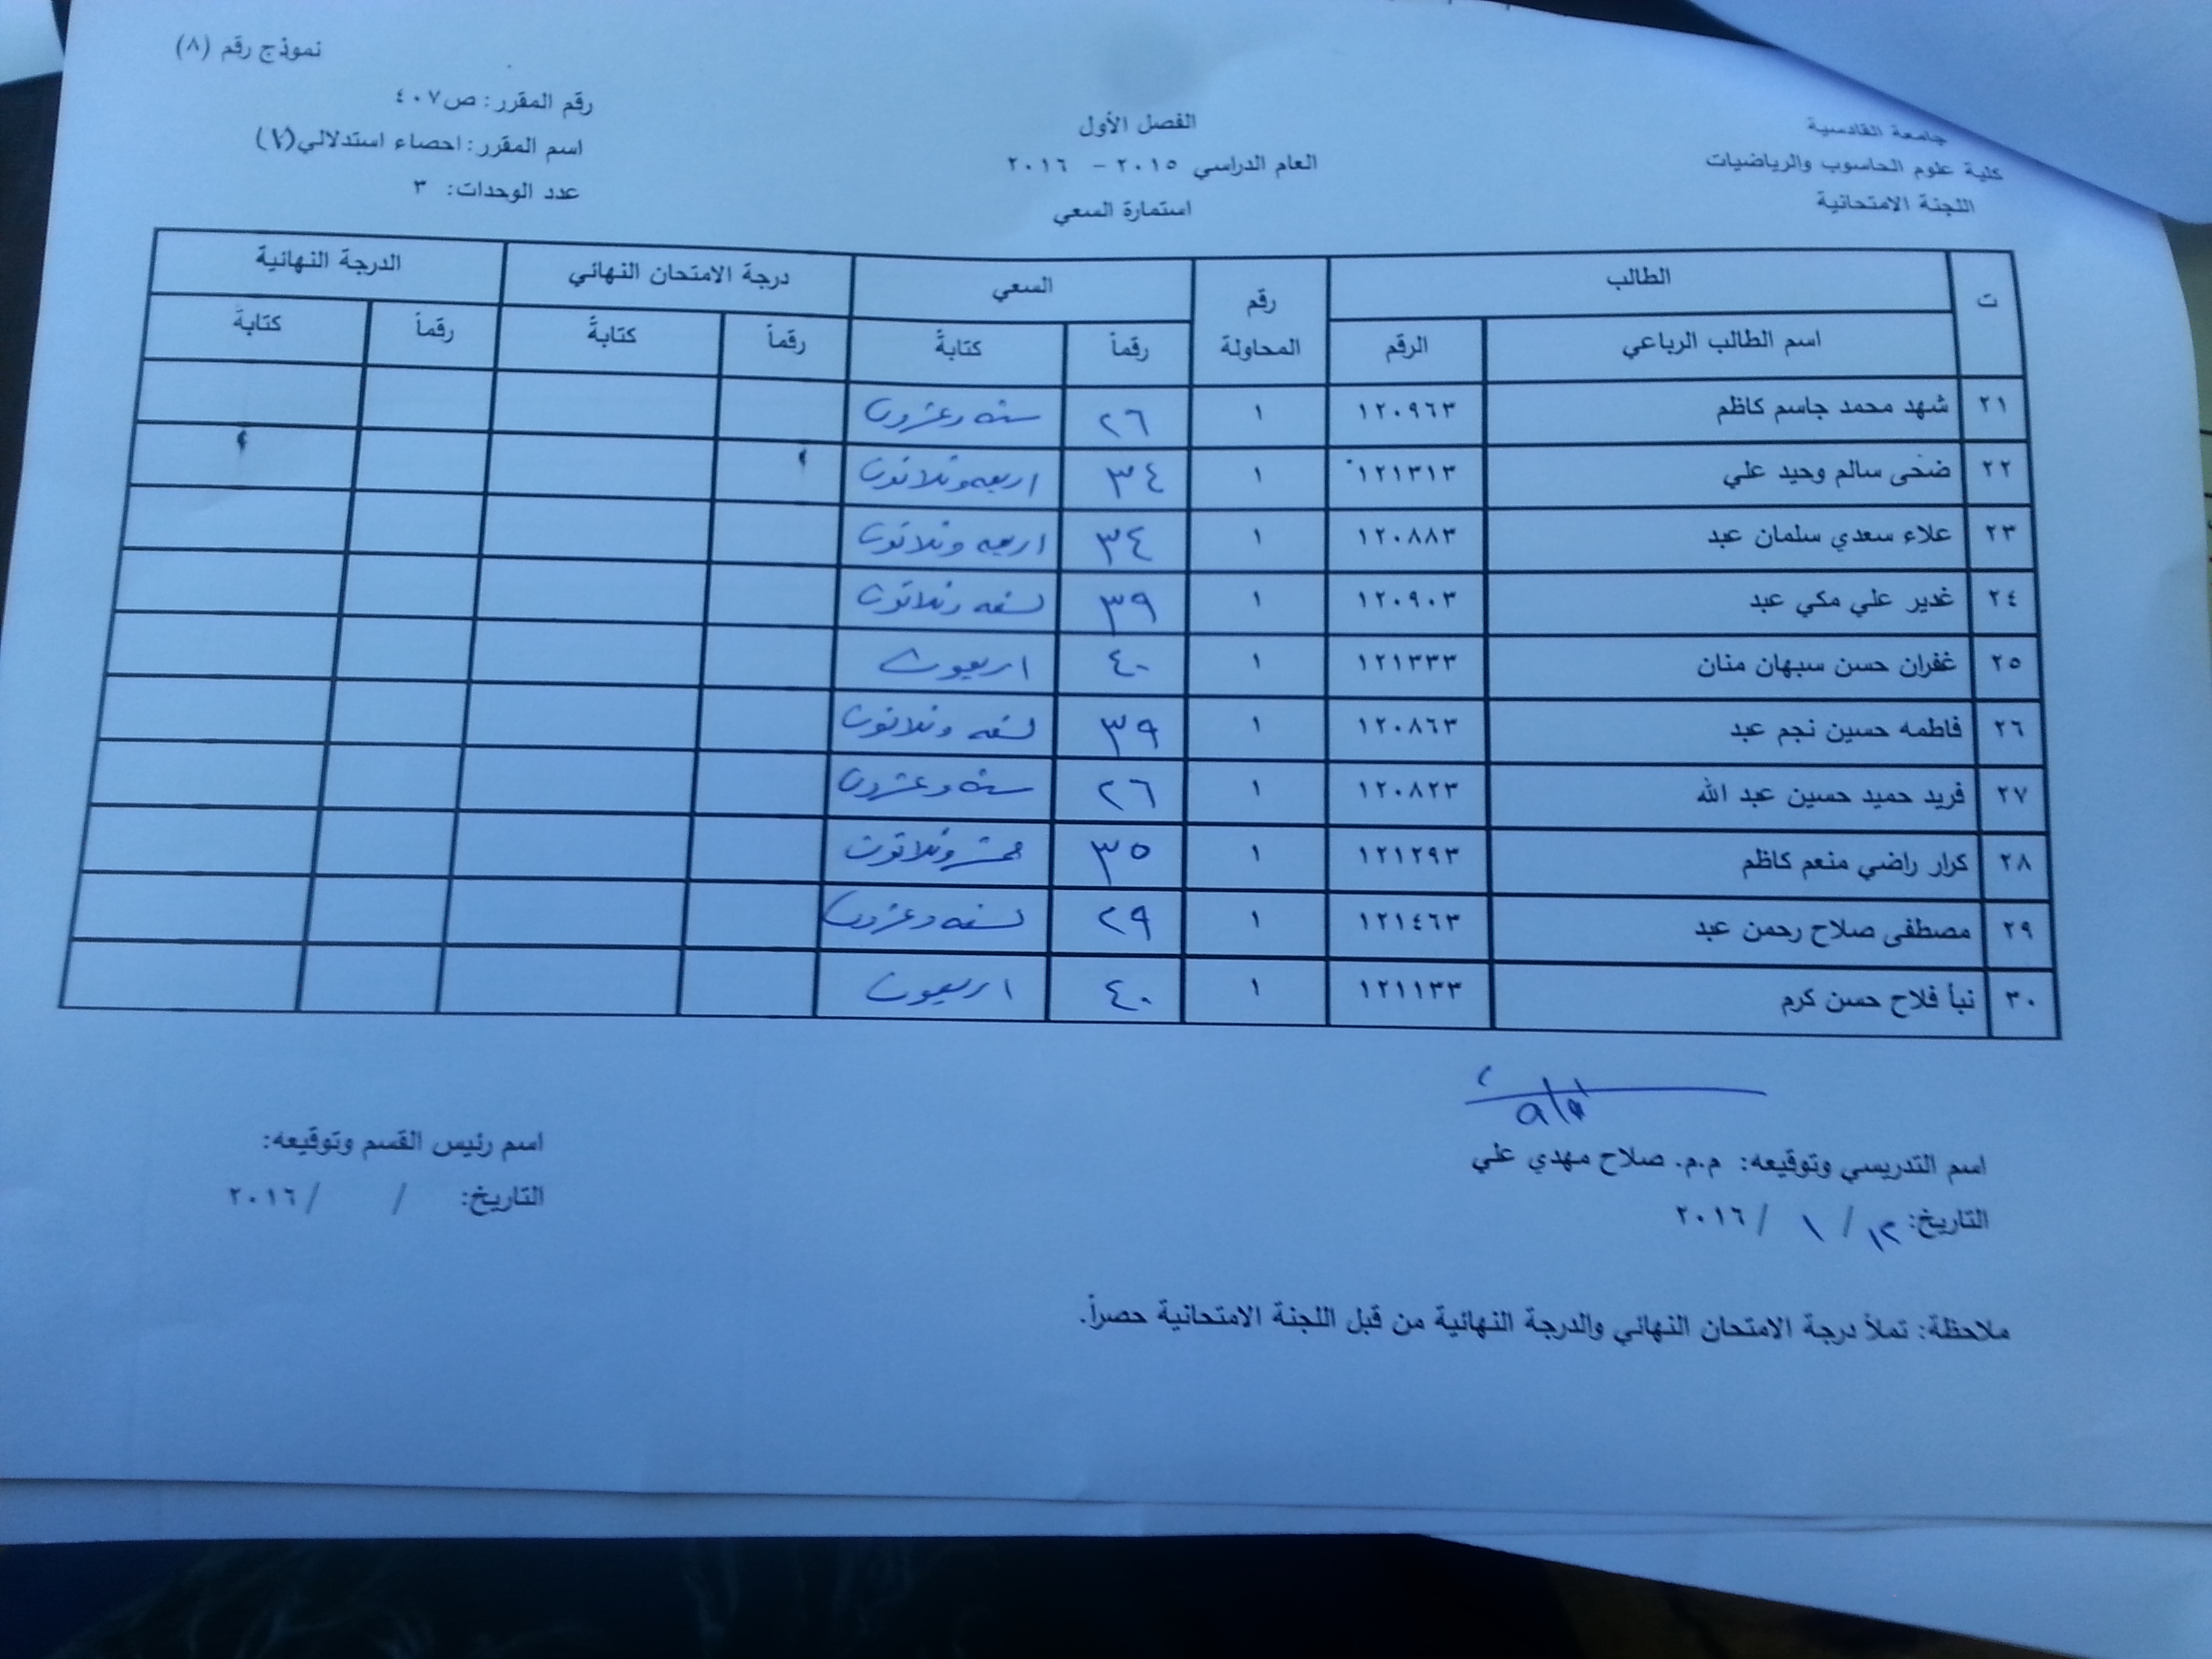 نموذج رقم (٨)
جامعة القادسية
كلية علوم الحاسوب والرياضيات
اللجنة الامتحانية
الفصل الأول
العام الدراسي ٢٠١٥ - ٢٠١٦
استمارة السعي
رقم المقرر: ص٤٠٧
اسم المقرر: احصاء استدلالي
عدد الوحدات: ٣
ت الطالب رقم المحاولة السعي درجة الامتحان النهائي الدرجة النهائية
اسم الطالب الرباعي الرقم رقماً كتابةً رقماً كتابةً رقماً كتابةً
٢١ شهد محمد جاسم كاظم ١٢٠٩٦٣ ١ ٢٦ سته وعشرون
٢٢ ضحى سالم وحيد علي ١٢١٣١٣ ١ ٣٤ اربعه وثلاثون
٢٣ علاء سعدي سلمان عبد ١٢٠٨٨٣ ١ ٣٤ اربعه وثلاثون
٢٤ غدير علي مكي عبد ١٢٠٩٠٣ ١ ٣٩ تسعه وثلاثون
٢٥ غفران حسن سبهان منان ١٢١٣٣٣ ١ ٤٠ اربعون
٢٦ فاطمه حسين نجم عبد ١٢٠٨٦٣ ١ ٣٩ تسعه وثلاثون
٢٧ فريد حميد حسين عبد الله ١٢٠٨٢٣ ١ ٢٦ سته وعشرون
٢٨ كرار راضي منعم كاظم ١٢١٢٩٣ ١ ٣٥ خمسه وثلاثون
٢٩ مصطفى صلاح رحمن عبد ١٢١٤٦٣ ١ ٢٩ تسعه وعشرون
٣٠ نبأ فلاح حسن كرم ١٢١١٣٣ ١ ٤٠ اربعون
اسم التدريسي وتوقيعه: م.م. صلاح مهدي علي
التاريخ: ١٢ / ١ / ٢٠١٦
اسم رئيس القسم وتوقيعه:
التاريخ: / / ٢٠١٦
ملاحظة: تملأ درجة الامتحان النهائي والدرجة النهائية من قبل اللجنة الامتحانية حصراً.